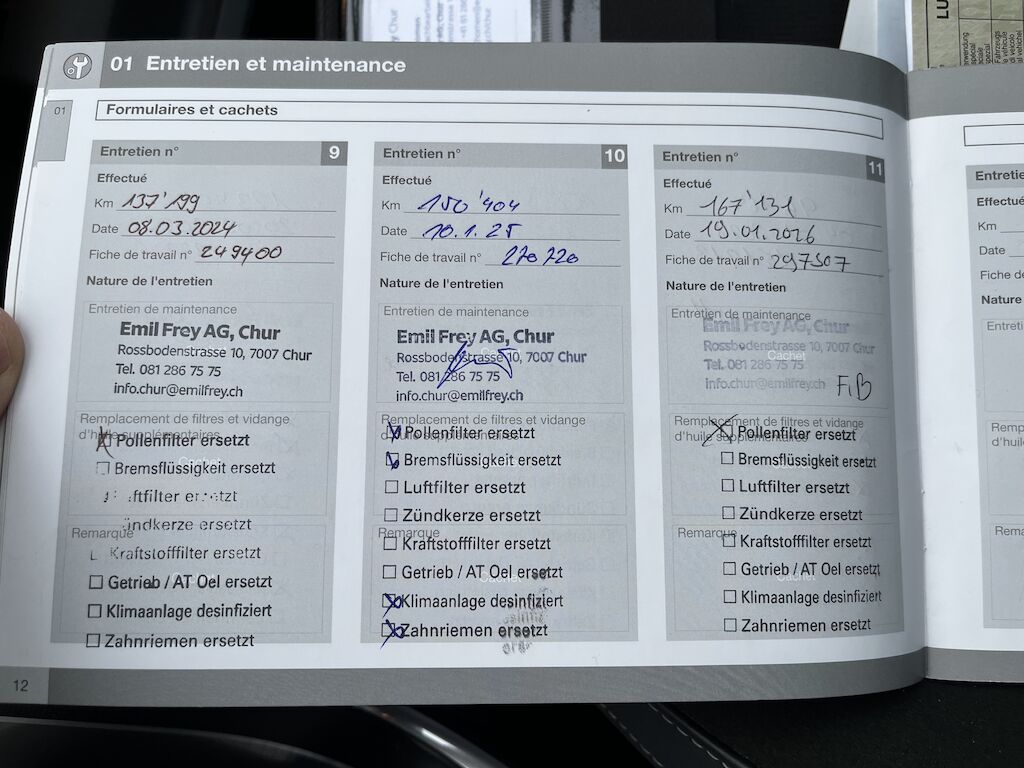 01 Entretien et maintenance
01
Formulaires et cachets
Entretien n° 9
Effectué
Km 137'199
Date 08.03.2024
Fiche de travail n° 249400
Nature de l'entretien
Entretien de maintenance
Emil Frey AG, Chur
Rossbodenstrasse 10, 7007 Chur
Tel. 081 286 75 75
info.chur@emilfrey.ch
Remplacement de filtres et vidange
d'huile supplémentaires
Pollenfilter ersetzt
Cachet
Bremsflüssigkeit ersetzt
ftfilter ersetzt
ündkerze ersetzt
Remarque
Kraftstofffilter ersetzt
Getrieb / AT Oel ersetzt
Cachet
Klimaanlage desinfiziert
Zahnriemen ersetzt
Entretien n° 10
Effectué
Km 150'404
Date 10.1.25
Fiche de travail n° 270720
Nature de l'entretien
Entretien de maintenance
Emil Frey AG, Chur
Rossbodenstrasse 10, 7007 Chur
Cachet
Tel. 081 286 75 75
info.chur@emilfrey.ch
Remplacement de filtres et vidange
d'huile supplémentaires
Pollenfilter ersetzt
Bremsflüssigkeit ersetzt
Cachet
Luftfilter ersetzt
Zündkerze ersetzt
Remarque
Kraftstofffilter ersetzt
Getrieb / AT Oel ersetzt
Cachet
Klimaanlage desinfiziert
Zahnriemen ersetzt
Entretien n° 11
Effectué
Km 167'131
Date 19.01.2026
Fiche de travail n° 297307
Nature de l'entretien
Entretien de maintenance
Emil Frey AG, Chur
Rossbodenstrasse 10, 7007 Chur
Cachet
Tel. 081 286 75 75
info.chur@emilfrey.ch
FiB
Remplacement de filtres et vidange
d'huile supplémentaires
Pollenfilter ersetzt
Bremsflüssigkeit ersetzt
Cachet
Luftfilter ersetzt
Zündkerze ersetzt
Remarque
Kraftstofffilter ersetzt
Getrieb / AT Oel ersetzt
Cachet
Klimaanlage desinfiziert
Zahnriemen ersetzt
12
Entretie
Effectué
Km
Date
Fiche d
Nature
Entreti
Rempl
d'huil
Rema